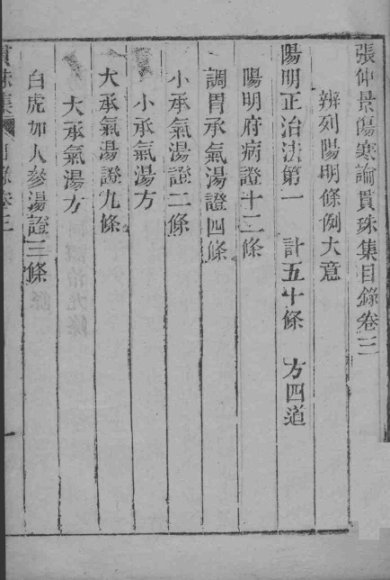 張仲景傷寒論貫珠集目錄卷三
辨列陽明條例大意
陽明正治法第一　計五十條　方四道
陽明府病證十二條
調胃承氣湯證四條
小承氣湯證二條
小承氣湯方
大承氣湯證九條
大承氣湯方
白虎加人參湯證三條
貫珠集 目錄卷三